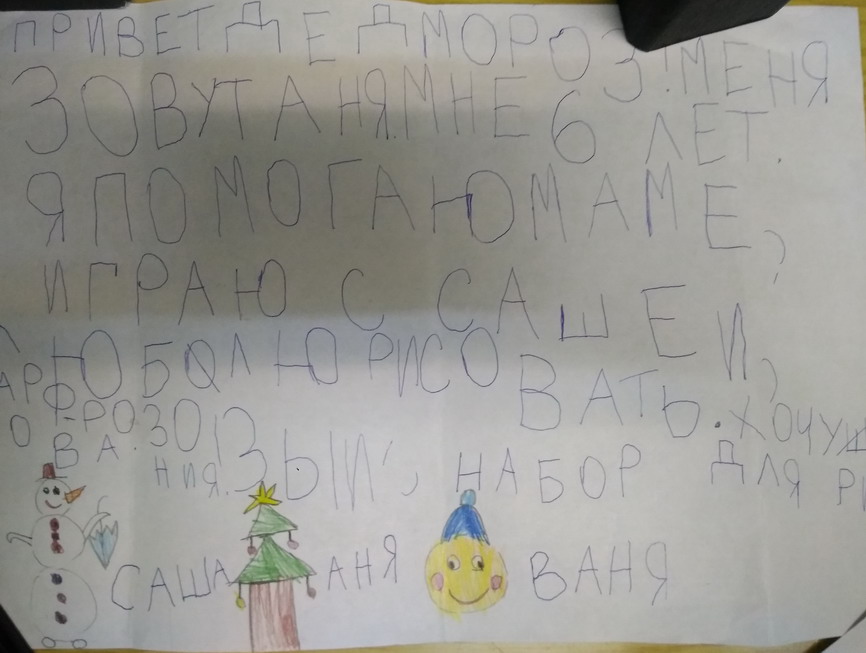 ПРИВЕТ ДЕД МОРОЗ! МЕНЯ
ЗОВУТ АНЯ. МНЕ 6 ЛЕТ.
Я ПОМОГАЮ МАМЕ,
ИГРАЮ С САШЕЙ,
ЛЮБЛЮ РИСОВАТЬ. ХОЧУ
НАБОР ДЛЯ РИ
САША АНЯ ВАНЯ